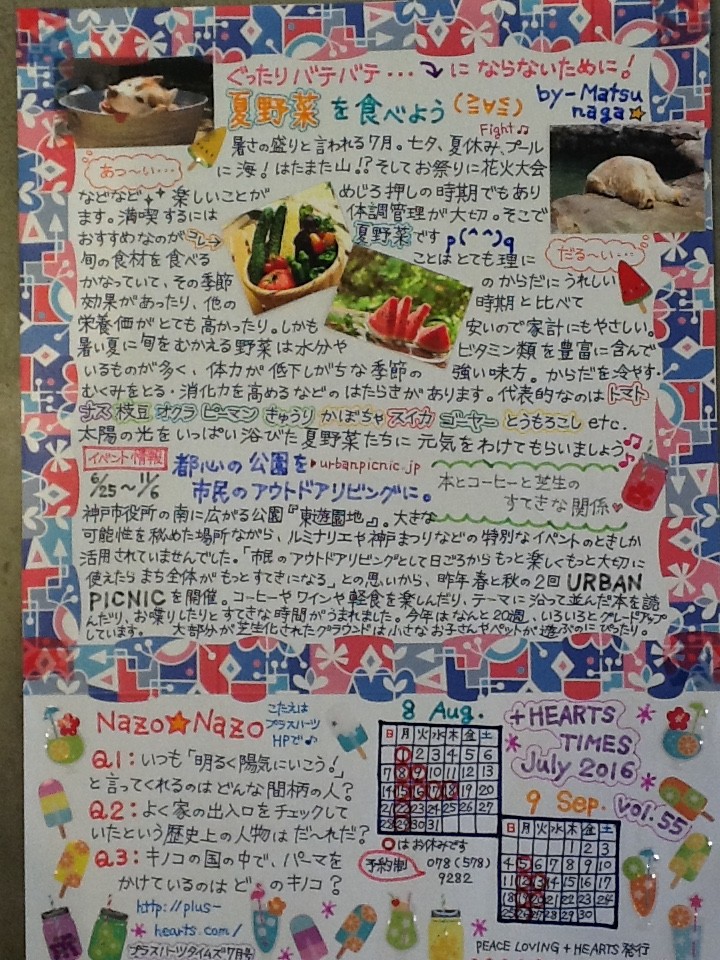 ぐったりバテバテ・・・⤵にならないために!
夏野菜を食べよう(≧∀≦)
by-Matsu
naga☆
Fight♫
暑さの盛りと言われる7月。七夕、夏休み、プール
に海!はたまた山!?そしてお祭りに花火大会
あつ〜い・・・
などなど 楽しいことが めじろ押しの時期でもあり
ます。満喫するには 体調管理が大切。そこで
おすすめなのがコレ→ 夏野菜です p(^^)q
だる〜い・・・
旬の食材を食べる ことはとても理に
かなっていて、その季節 のからだにうれしい
効果があったり、他の 時期と比べて
栄養価がとても高かったり。しかも 安いので家計にもやさしい。
暑い夏に旬をむかえる野菜は水分や ビタミン類を豊富に含んで
いるものが多く、体力が低下しがちな季節の 強い味方。からだを冷やす・
むくみをとる・消化力を高めるなどのはたらきがあります。代表的なのはトマト
ナス 枝豆 オクラ ピーマン きゅうり かぼちゃ スイカ ゴーヤー とうもろこし etc.
太陽の光をいっぱい浴びた夏野菜たちに元気をわけてもらいましょう♫
イベント情報
6/25〜11/6
都心の公園を ▸urbanpicnic.jp
市民のアウトドアリビングに。
本とコーヒーと芝生の
すてきな関係♥
神戸市役所の南に広がる公園『東遊園地』。大きな
可能性を秘めた場所ながら、ルミナリエや神戸まつりなどの特別なイベントのときしか
活用されていませんでした。「市民のアウトドアリビングとして日ごろからもっと楽しくもっと大切に
使えたらまち全体がもっとすてきになる」との思いから、昨年春と秋の2回URBAN
PICNICを開催。コーヒーやワインや軽食を楽しんだり、テーマに沿って並んだ本を読
んだり、お喋りしたりとすてきな時間がうまれました。今年はなんと20週、いろいろとグレードアップ
しています。 大部分が芝生化されたグラウンドは小さなお子さんやペットが遊ぶのにぴったり。
Nazo★Nazo
こたえは
プラスハーツ
HPで♪
Q.1:いつも「明るく陽気にいこう!」
と言ってくれるのはどんな間柄の人?
Q.2:よく家の出入口をチェックして
いたという歴史上の人物はだ〜れだ?
Q.3:キノコの国の中で、パーマを
かけているのはどのキノコ?
http://plus-
hearts.com/
プラスハーツタイムズ7月号
8 Aug.
日 月 火 水 木 金 土
1 2 3 4 5 6
7 8 9 10 11 12 13
14 15 16 17 18 19 20
21 22 23 24 25 26 27
28 29 30 31
○はお休みです
予約制 078(578)
9282
+HEARTS
TIMES
July 2016
vol.55
9 Sep.
日 月 火 水 木 金 土
1 2 3
4 5 6 7 8 9 10
11 12 13 14 15 16 17
18 19 20 21 22 23 24
25 26 27 28 29 30
PEACE LOVING +HEARTS 発行